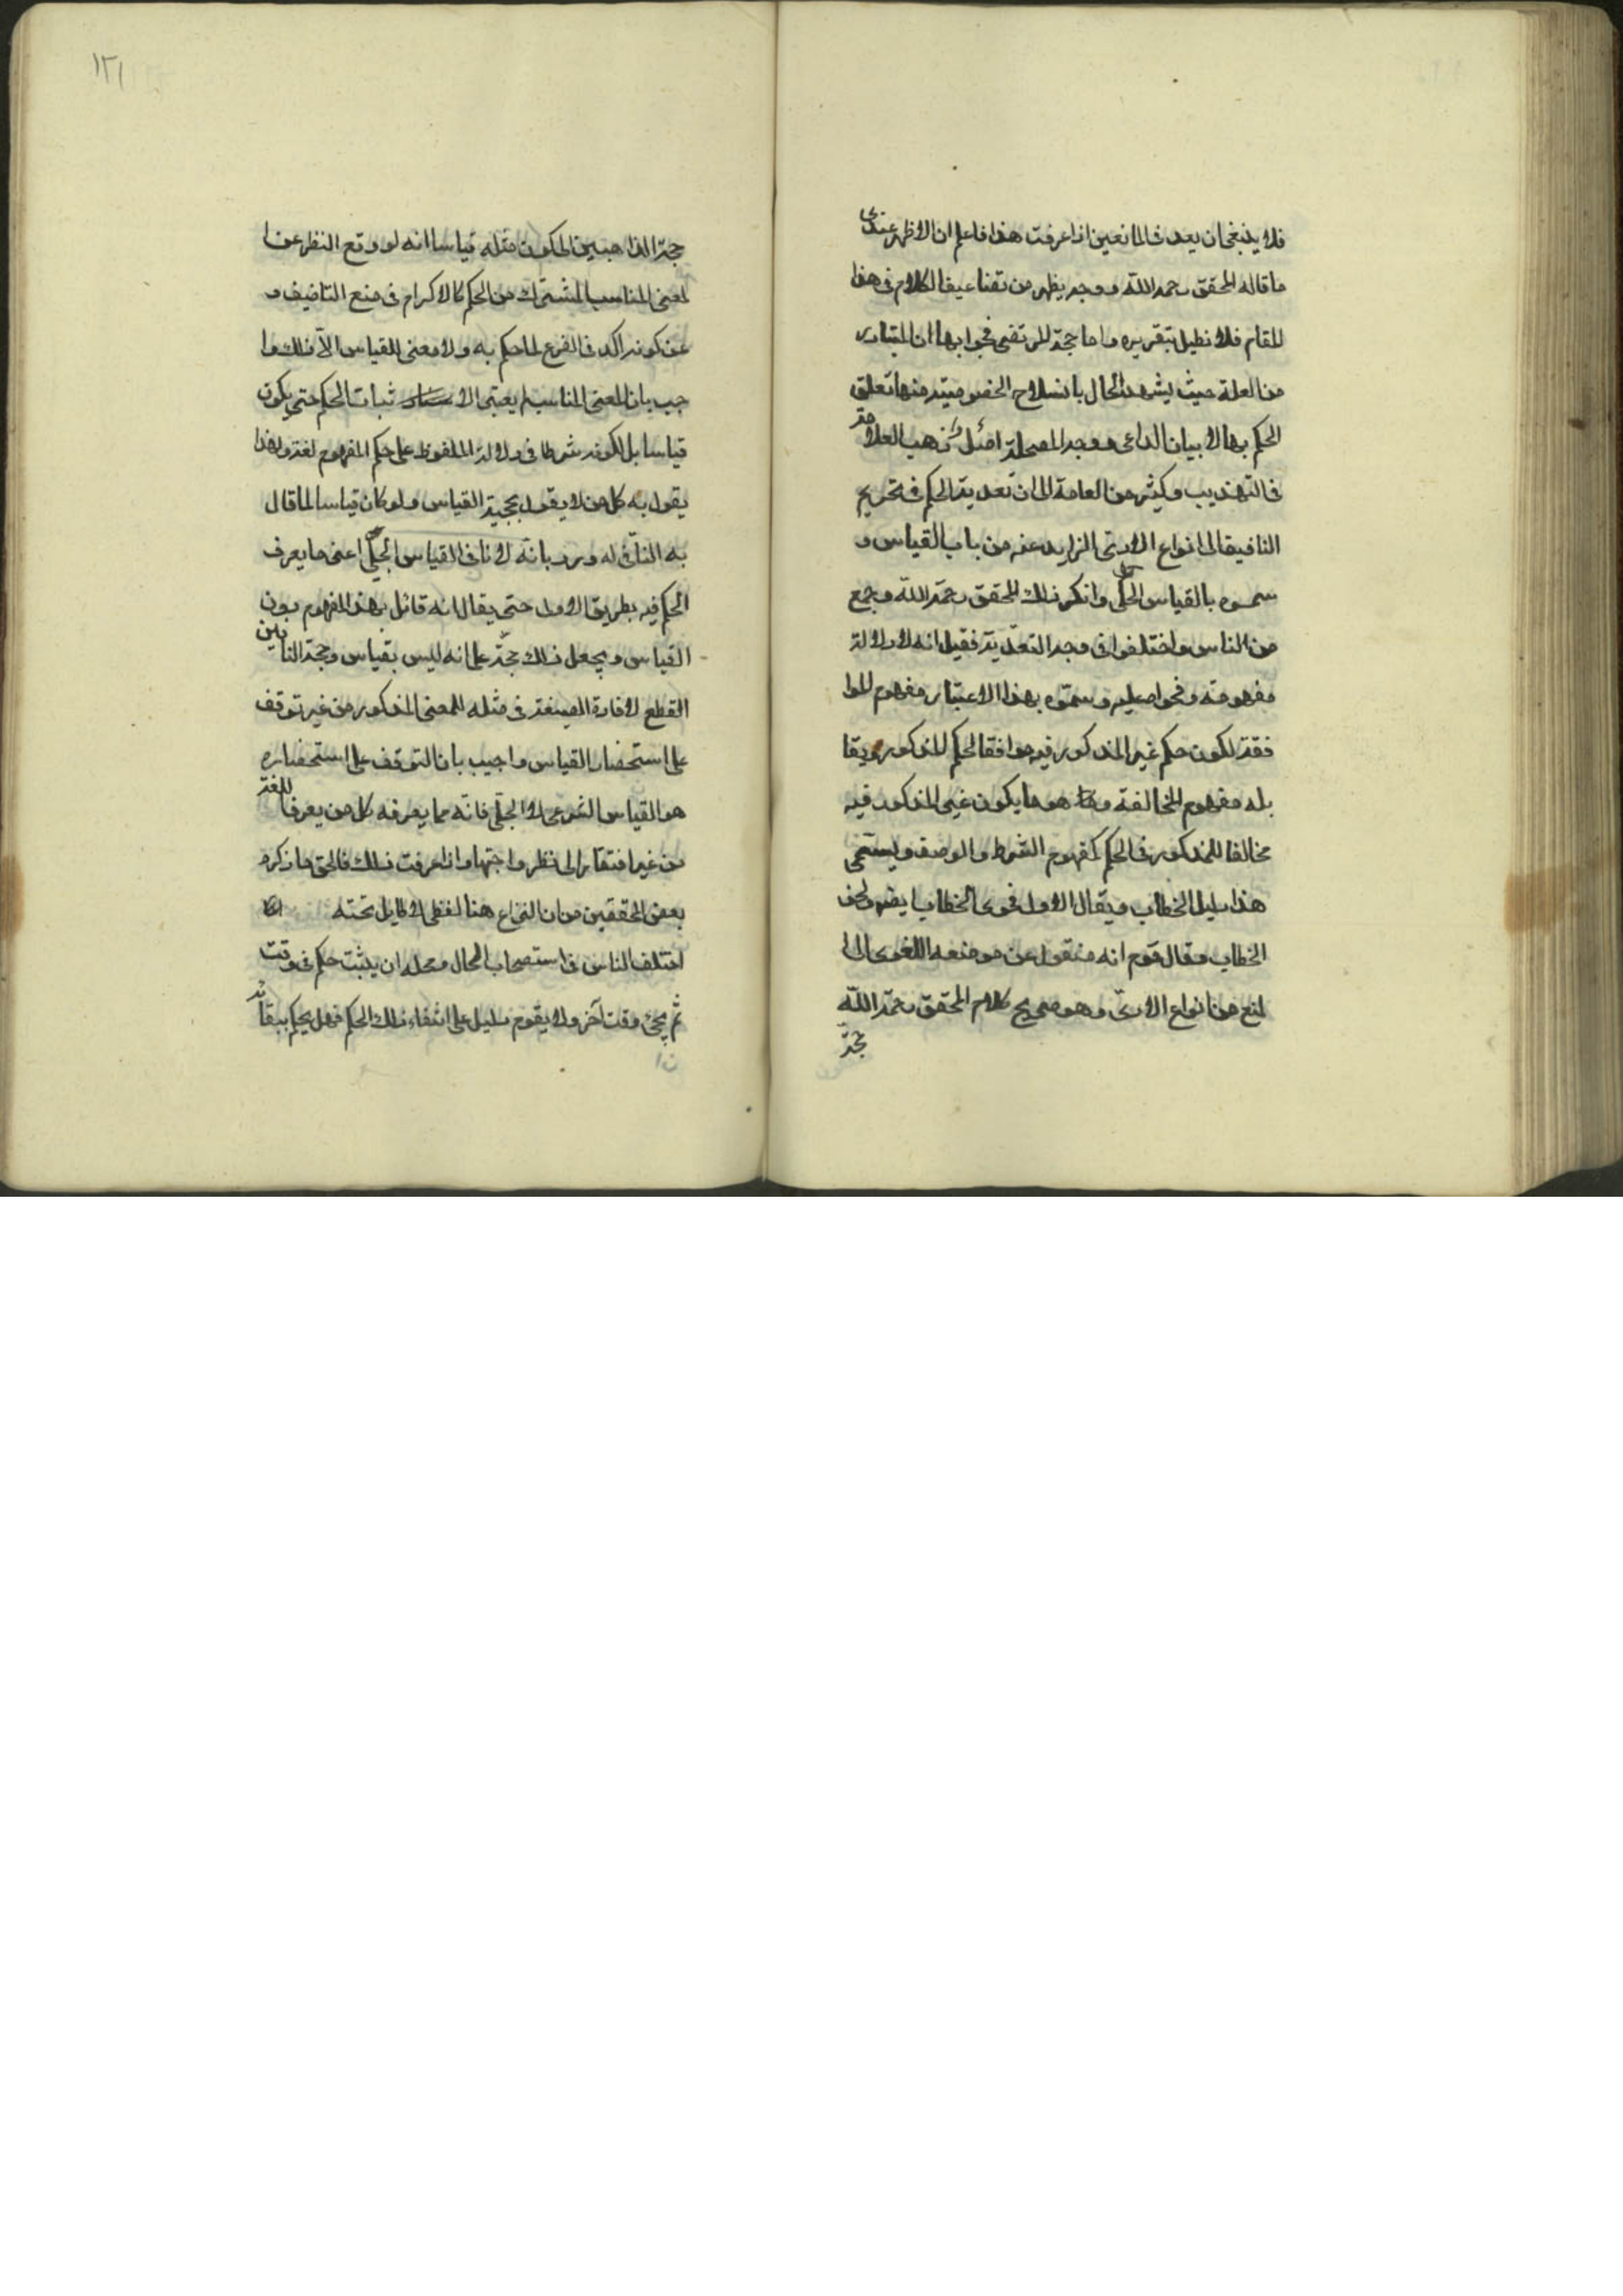 فلا ينبغي ان يعد في المانعين اذا عرفت هذا فاعلم ان الاظهر عندي
ما قاله المحقق رحمه الله ووجهه يظهر من تضاعيف الكلام في هذا
المقام فلا نطيل بتقريره واما حجة المرتضى فجوابها ان المتبادر
من العلة حيث يشهد الحال بانسلاخ الخصوصية منها تعلق
الحكم بها لا بيان الداعي ووجه المصلحة اصل ذهب العلامة
في التهذيب وكثير من العامة الى ان تعدية الحكم في تحريم
التافيف الى انواع الاذى الزايد عنه من باب القياس و
سموه بالقياس الجلي وانكر ذلك المحقق رحمه الله وجمع
من الناس واختلفوا في وجه التعدية فقيل انه لادلالة
مفهومه وفحواه عليه وسموه بهذا الاعتبار مفهوم الموا
فقة لكون حكم غير المذكور فيه موافقا لحكم المذكور ويقا
بله مفهوم المخالفة وهو ما يكون غير المذكور فيه
مخالفا للمذكور في الحكم كمفهوم الشرط والوصف ويسمى
هذا دليل الخطاب ويقال للاول فحوى الخطاب ايضا ولحن
الخطاب وقال قوم انه منقول عن موضعه اللغوي الى
المنع من انواع الاذى وهو صريح كلام المحقق رحمه الله
حجة
١٢١
حجة الذاهبين لكون مثله قياسا انه لو وقع النظر عن ا
لمعنى المناسب المشترك من الحكم كالاكرام في منع التافيف و
عن كونه اكد في الفرع لما حكم به ولا معنى للقياس الا ذلك وا
جيب بان المعنى المناسب لم يعتبر لاثبات الحكم حتى يكون
قياسا بل لكونه شرطا في دلالة الملفوظ على حكم المفهوم لغة ولهذا
يقول به كل من لا يقول بحجية القياس ولو كان قياسا لما قال
به النافي له ورد بانه لا نافي القياس الجلي اعني ما يعرف
الحكم فيه بطريق الاولى حتى يقال انه قائل بهذا المفهوم بدون
القياس ويجعل ذلك حجة على انه ليس بقياس وحجة النافين
القطع لافادة الصيغة في مثله المعنى المذكور من غير توقف
على استحضار القياس واجيب بان التوقف على استحضاره
هو القياس الشرعي لا الجلي فانه مما يعرفه كل من يعرف اللغة
من غير افتقار الى نظر واجتهاد اذا عرفت ذلك فالحق ما ذكره
بعض المحققين من ان النزاع هنا لفظي لا طايل تحته
اختلف الناس في استصحاب الحال ومحله ان يثبت حكم في وقت
ثم يجئ وقت آخر ولا يقوم دليل على انتفاء ذلك الحكم فهل يحكم ببقائه